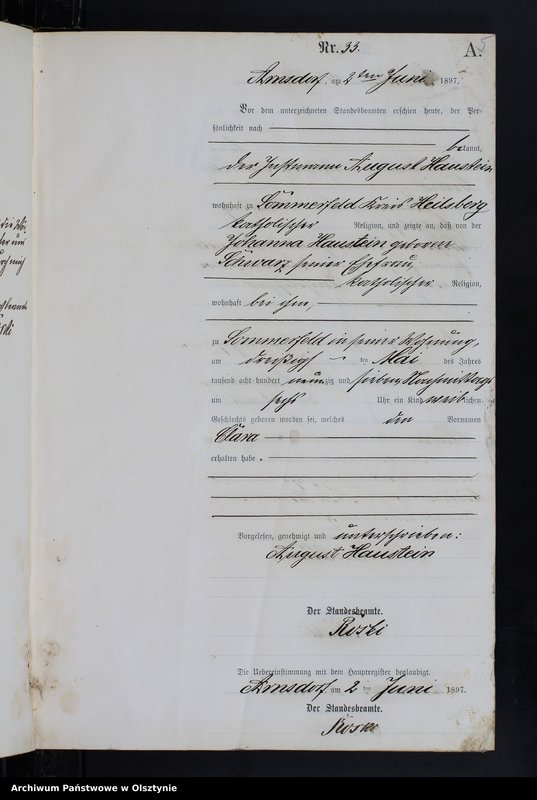 Nr. 33.
A.
5
Arnsdorf, am 2ten Juni 1897.
Vor dem unterzeichneten Standesbeamten erschien heute, der Per-
sönlichkeit nach
bekannt,
der Instmann August Haustein
wohnhaft zu Sommerfeld Kreis Heilsberg
katholischer Religion, und zeigte an, daß von der
Johanna Haustein geborene
Schwarz, seiner Ehefrau,
katholischer Religion,
wohnhaft bei ihm,
zu Sommerfeld in seiner Wohnung,
am dreißigsten Mai des Jahres
tausend acht hundert neunzig und sieben Nachmittags
um sechs Uhr ein Kind weiblichen
Geschlechts geboren worden sei, welches den Vornamen
Clara
erhalten habe.
Vorgelesen, genehmigt und unterschrieben:
August Haustein
Der Standesbeamte.
Röski
Die Uebereinstimmung mit dem Hauptregister beglaubigt.
Arnsdorf, am 2 ten Juni 1897.
Der Standesbeamte.
Röski
Archiwum Państwowe w Olsztynie